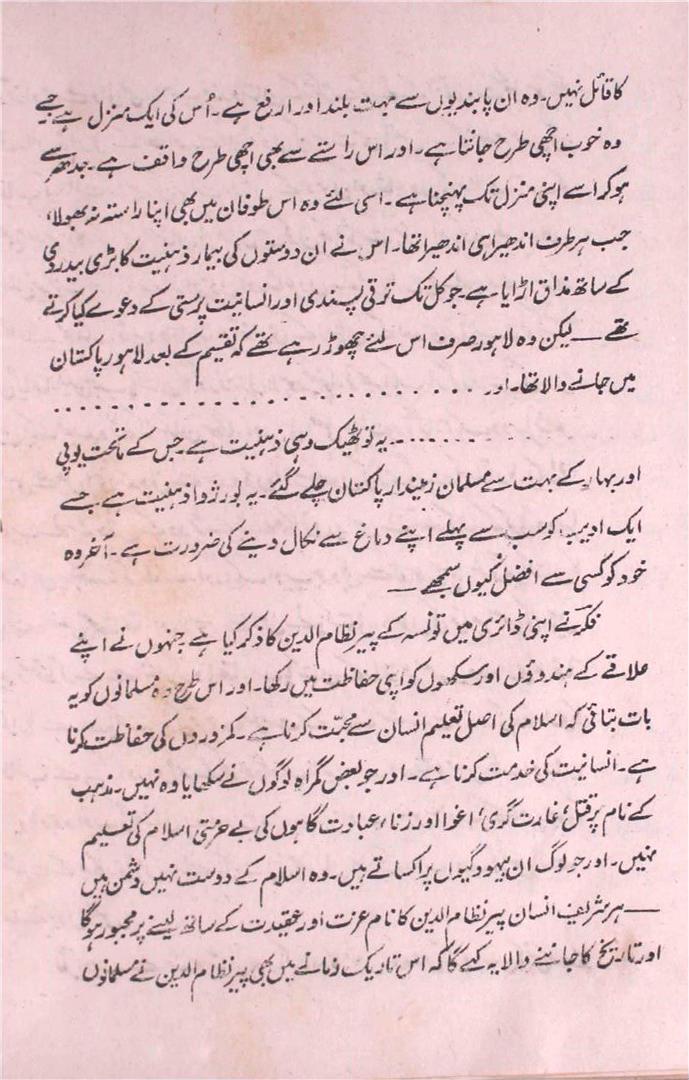 کا قائل نہیں۔ وہ ان پابندیوں سے بہت بلند اور ارفع ہے۔ اُس کی ایک منزل ہے جسے
وہ خوب اچھی طرح جانتا ہے۔ اور اس راستے سے بھی اچھی طرح واقف ہے۔ جدھر سے
ہو کر اسے اپنی منزل تک پہنچنا ہے۔ اسی لئے وہ اس طوفان میں بھی اپنا راستہ نہ بھولا،
جب ہر طرف اندھیرا ہی اندھیرا تھا۔ اس نے ان دوستوں کی بیمار ذہنیت کا بڑی بیدردی
کے ساتھ مذاق اڑایا ہے۔ جو کل تک ترقی پسندی اور انسانیت پرستی کے دعوے کیا کرتے
تھے ــــ لیکن وہ لاہور صرف اس لئے چھوڑ رہے تھے کہ تقسیم کے بعد لاہور پاکستان
میں جانے والا تھا۔ اور ............................
.......... یہ تو ٹھیک وہی ذہنیت ہے۔ جس کے ماتحت یوپی
اور بہار کے بہت سے مسلمان زمیندار پاکستان چلے گئے۔ یہ بورژوا ذہنیت ہے۔ جسے
ایک ادیب کو سب سے پہلے اپنے دماغ سے نکال دینے کی ضرورت ہے۔ آخر وہ
خود کو کسی سے افضل کیوں سمجھے ــــ
فکر نے اپنی ڈائری میں تونسہ کے پیر نظام الدین کا ذکر کیا ہے جنہوں نے اپنے
علاقے کے ہندوؤں اور سکھوں کو اپنی حفاظت میں رکھا۔ اور اس طرح وہ مسلمانوں کو یہ
بات بتائی کہ اسلام کی اصل تعلیم انسان سے محبّت کرنا ہے۔ کمزوروں کی حفاظت کرنا
ہے۔ انسانیت کی خدمت کرنا ہے۔ اور جو بعض گمراہ لوگوں نے سکھایا وہ نہیں۔ مذہب
کے نام پر قتل، غارت گری، اغوا اور زنا، عبادت گاہوں کی بے حرمتی اسلام کی تعلیم
نہیں۔ اور جو لوگ ان بیہودگیوں پر اکساتے ہیں۔ وہ اسلام کے دوست نہیں دشمن ہیں
ــــ ہر شریف انسان پیر نظام الدین کا نام عزت اور عقیدت کے ساتھ لینے پر مجبور ہوگا
اور تاریخ کا جاننے والا یہ کہے گا کہ اس تاریک زمانے میں بھی پیر نظام الدین نے مسلمانوں